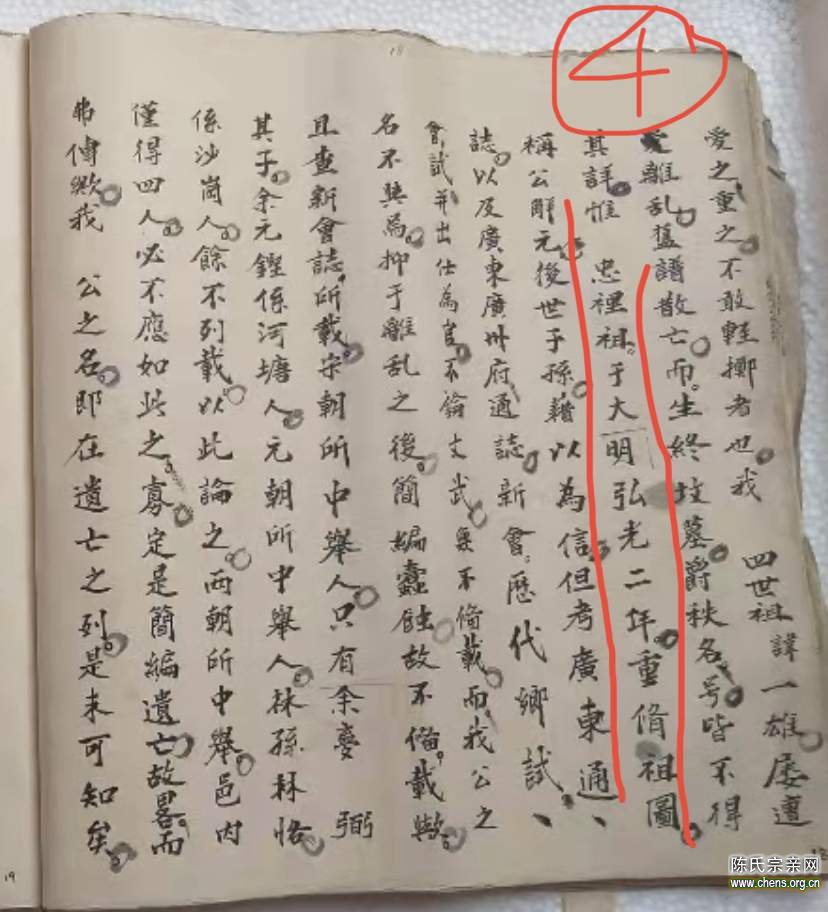 ④
18
愛之重之不敢輕擲者也。我　四世祖諱一雄。屡遭
離乱。旧譜散亡。而。生終坟墓。爵秩名号。皆不得
其詳。惟　忠裡祖。于大明弘光二年。重脩祖圖。
稱公觧元。後世子孫。藉以為信。但考廣東通、
誌。以及廣東廣州府通誌。新會。歷代鄉試、
會試并出仕為官。不論文武。無不脩載。而我公之
名不與焉。抑于離乱之後。簡編蠹蝕。故不脩。載歟。
且查新會誌。所載宋朝所中舉人。只有余夔　弼
其子。余元鏗係河塘人。元朝所中舉人。林孫林恪
係沙崗人。餘不列載。以此論之。两朝所中舉。邑内
僅得四人。必不應如此之寡。定是簡編遺亡。故畧。而
弗傳歟。我　公之名。即在遺亡之列。是未可知矣。
19
陈氏宗亲网
www.chens.org.cn